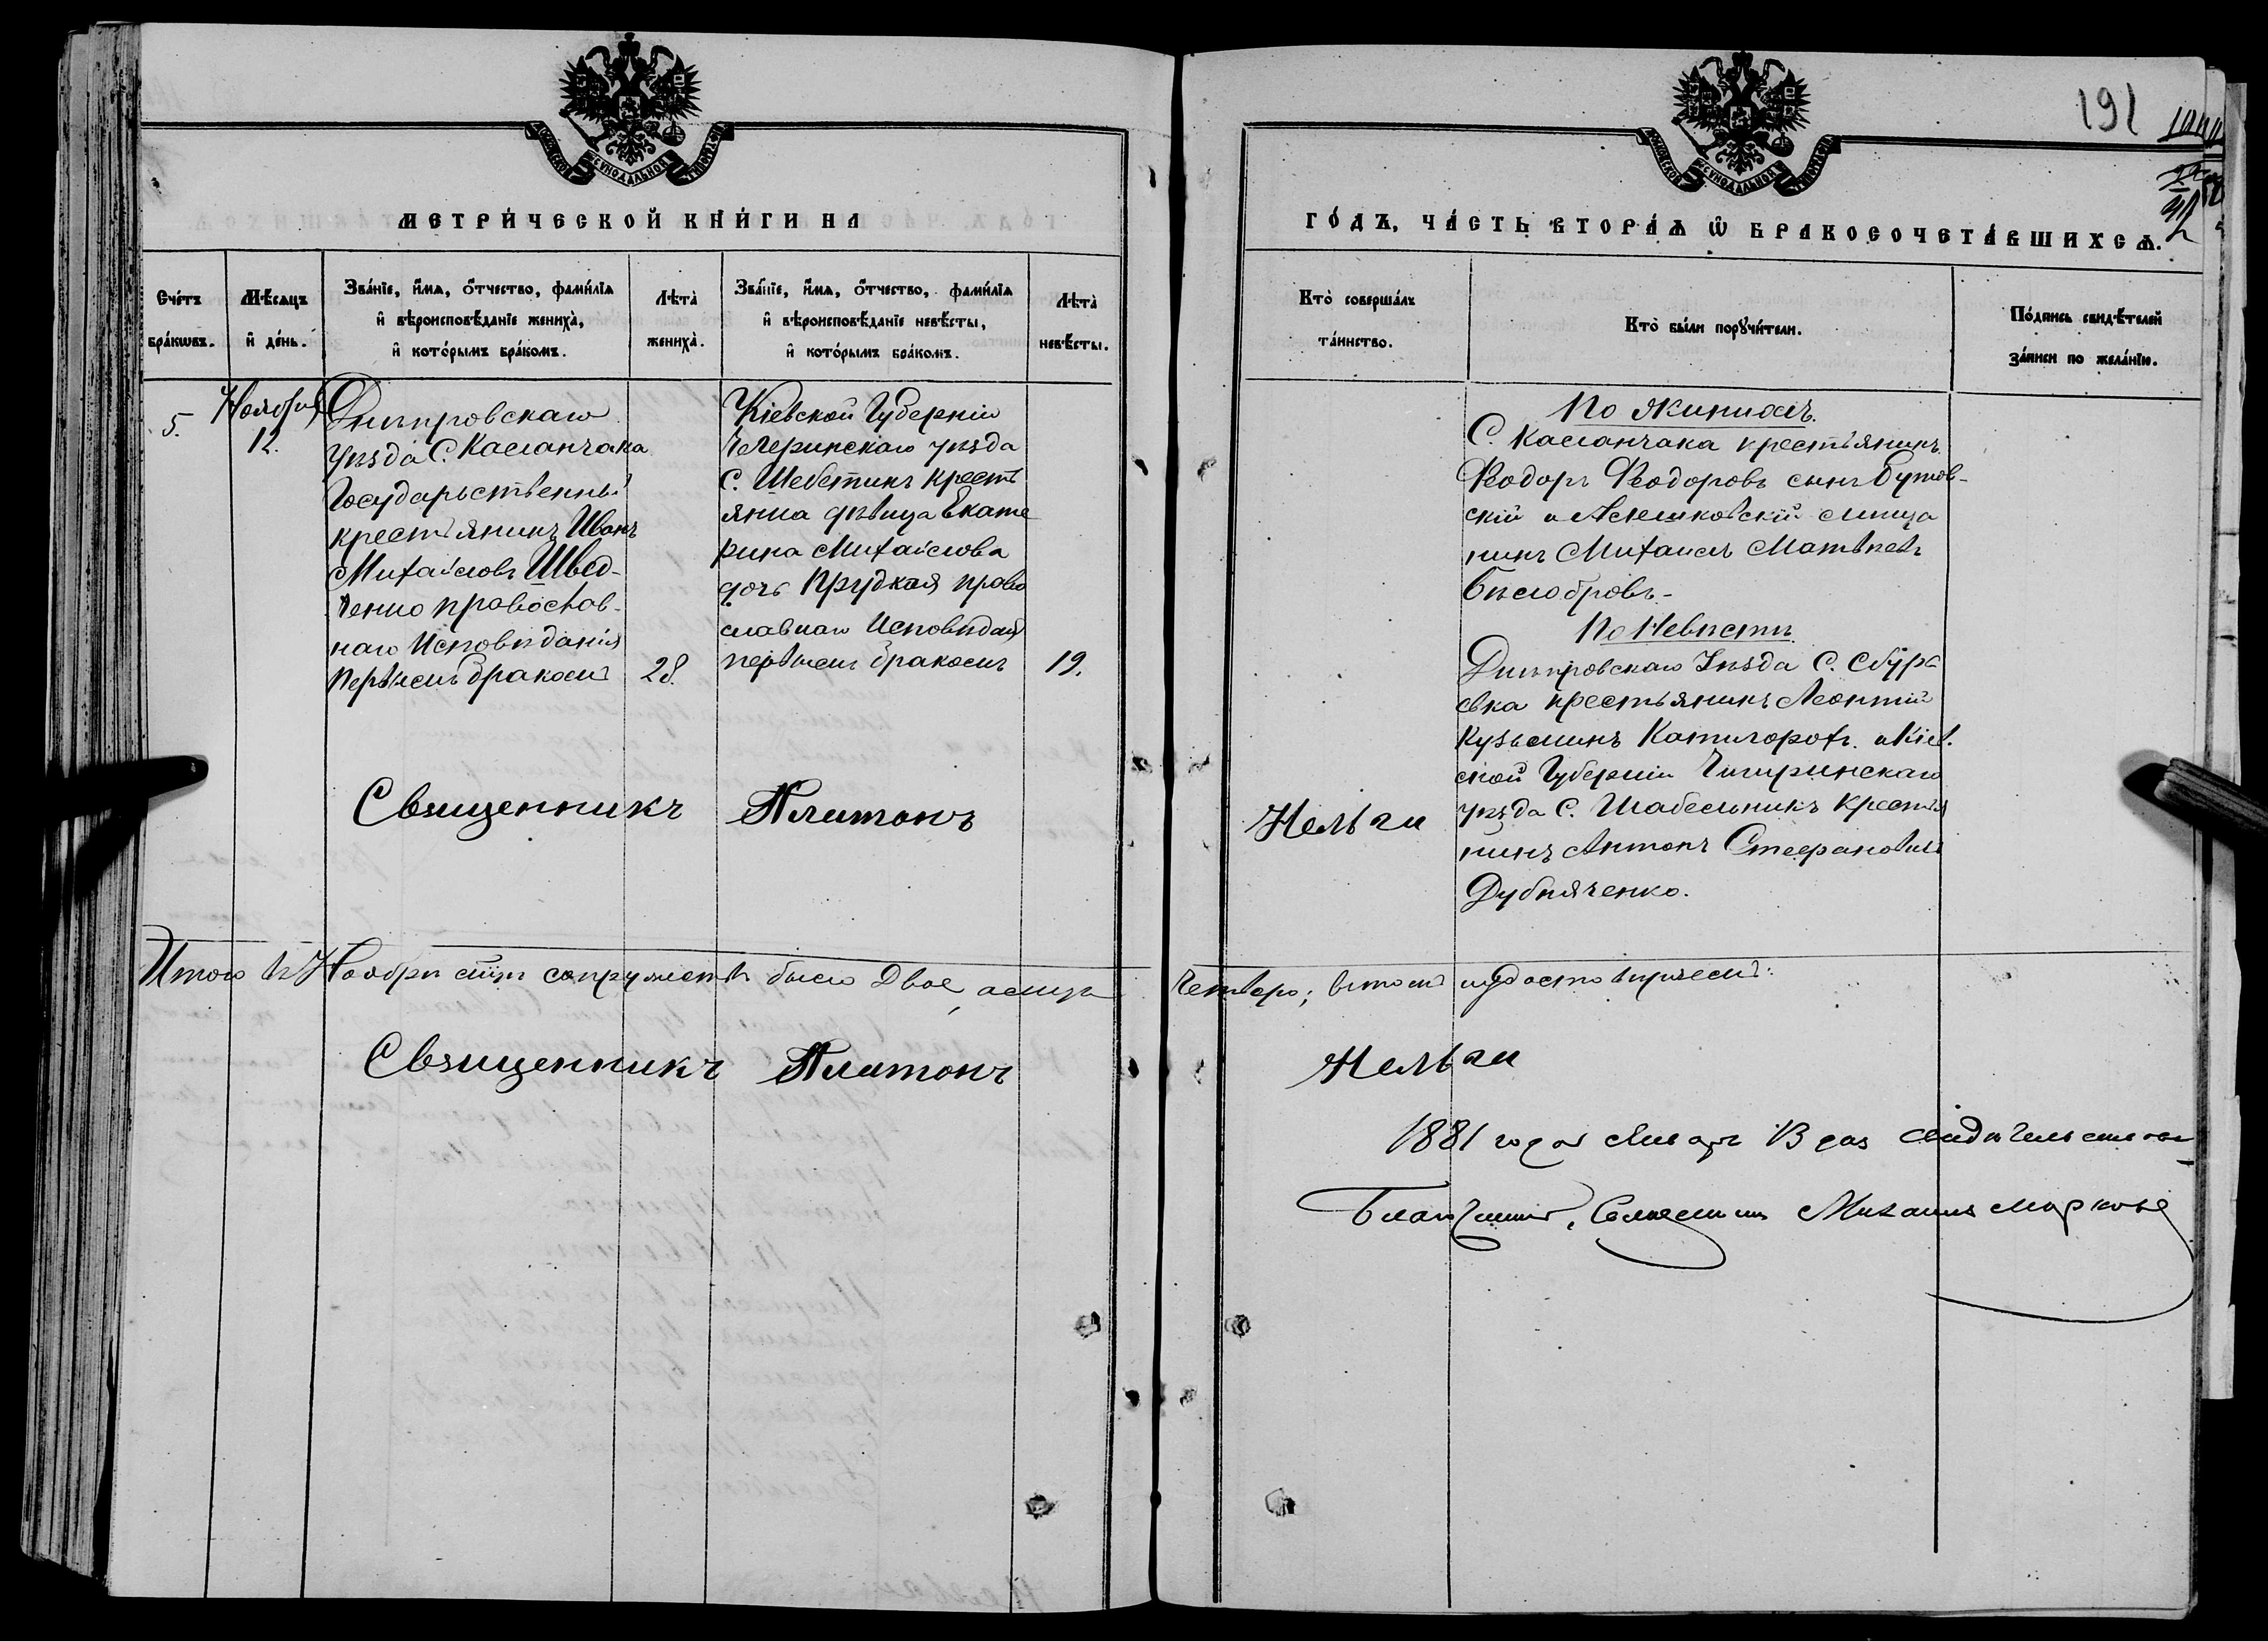 191
МЕТРИ́ЧЕСКОЙ КНИ́ГИ НА
ГО́ДЪ, ЧА́СТЬ ВТОРА́Я Ѡ҆ БРАКОСОЧЕТА́ВШИХСѦ.
Сче́тъ бра́кѡвъ.
Мѣ́сяцъ и҆ де́нь.
Зва́нїе, и҆́мя, ѻ҆́тчество, фами́лїя и҆ вѣроисповѣ́данїе жениха̀, и҆ кото́рымъ бра́комъ.
Лѣта̀ жениха̀.
Зва́нїе, и҆́мя, ѻ҆́тчество, фами́лїя и҆ вѣроисповѣ́данїе невѣ́сты, и҆ кото́рымъ бра́комъ.
Лѣта̀ невѣ́сты.
Кто̀ соверша́лъ та́инство.
Кто̀ бы́ли порꙋчи́тели.
По́дпись свидѣ́телей за́писи по жела́нїю.
5.
Ноября
12.
Днѣпровскаго
Уѣзда С. Каланчака
Государьственный
крестьянинъ Иванъ
Михаиловъ Швед-
ченко православ-
наго Исповѣданія
первымъ бракомъ
28.
Кіевской Губерніи
Чегеринскаго уѣзда
С. Шебетинъ кресть
янка дѣвица Екате
рина Михаилова
дочь Прудкая право
славнаго Исповѣданія
первымъ бракомъ
19.
По женихѣ
С. Каланчака крестьянинъ
Ѳеодоръ Ѳеодоровъ сынъ Бутов-
скій и Алешковскій мѣща
нинъ Михаилъ Матвѣевъ
Бѣлобровъ-
По Невѣстѣ
Днѣпровскаго Уѣзда С. Сбурь
евка крестьянинъ Леонтій
Кузьминъ Катигорохъ. и Кіев.
ской Губерніи Чигиринскаго
уѣзда С. Шабельникъ Крестья
нинъ Антонъ Стефановичъ
Дубняченко.
Священникъ Платонъ Нельги
Итого въ Ноябрѣ сихъ супружествъ было Двое, а лицъ четверо; въ томъ и удостовѣряемъ:
Священникъ Платонъ Нельги
1881 года Января 13 дня свидѣтельствовалъ
Благочинный, Священникъ Михаилъ Марковъ